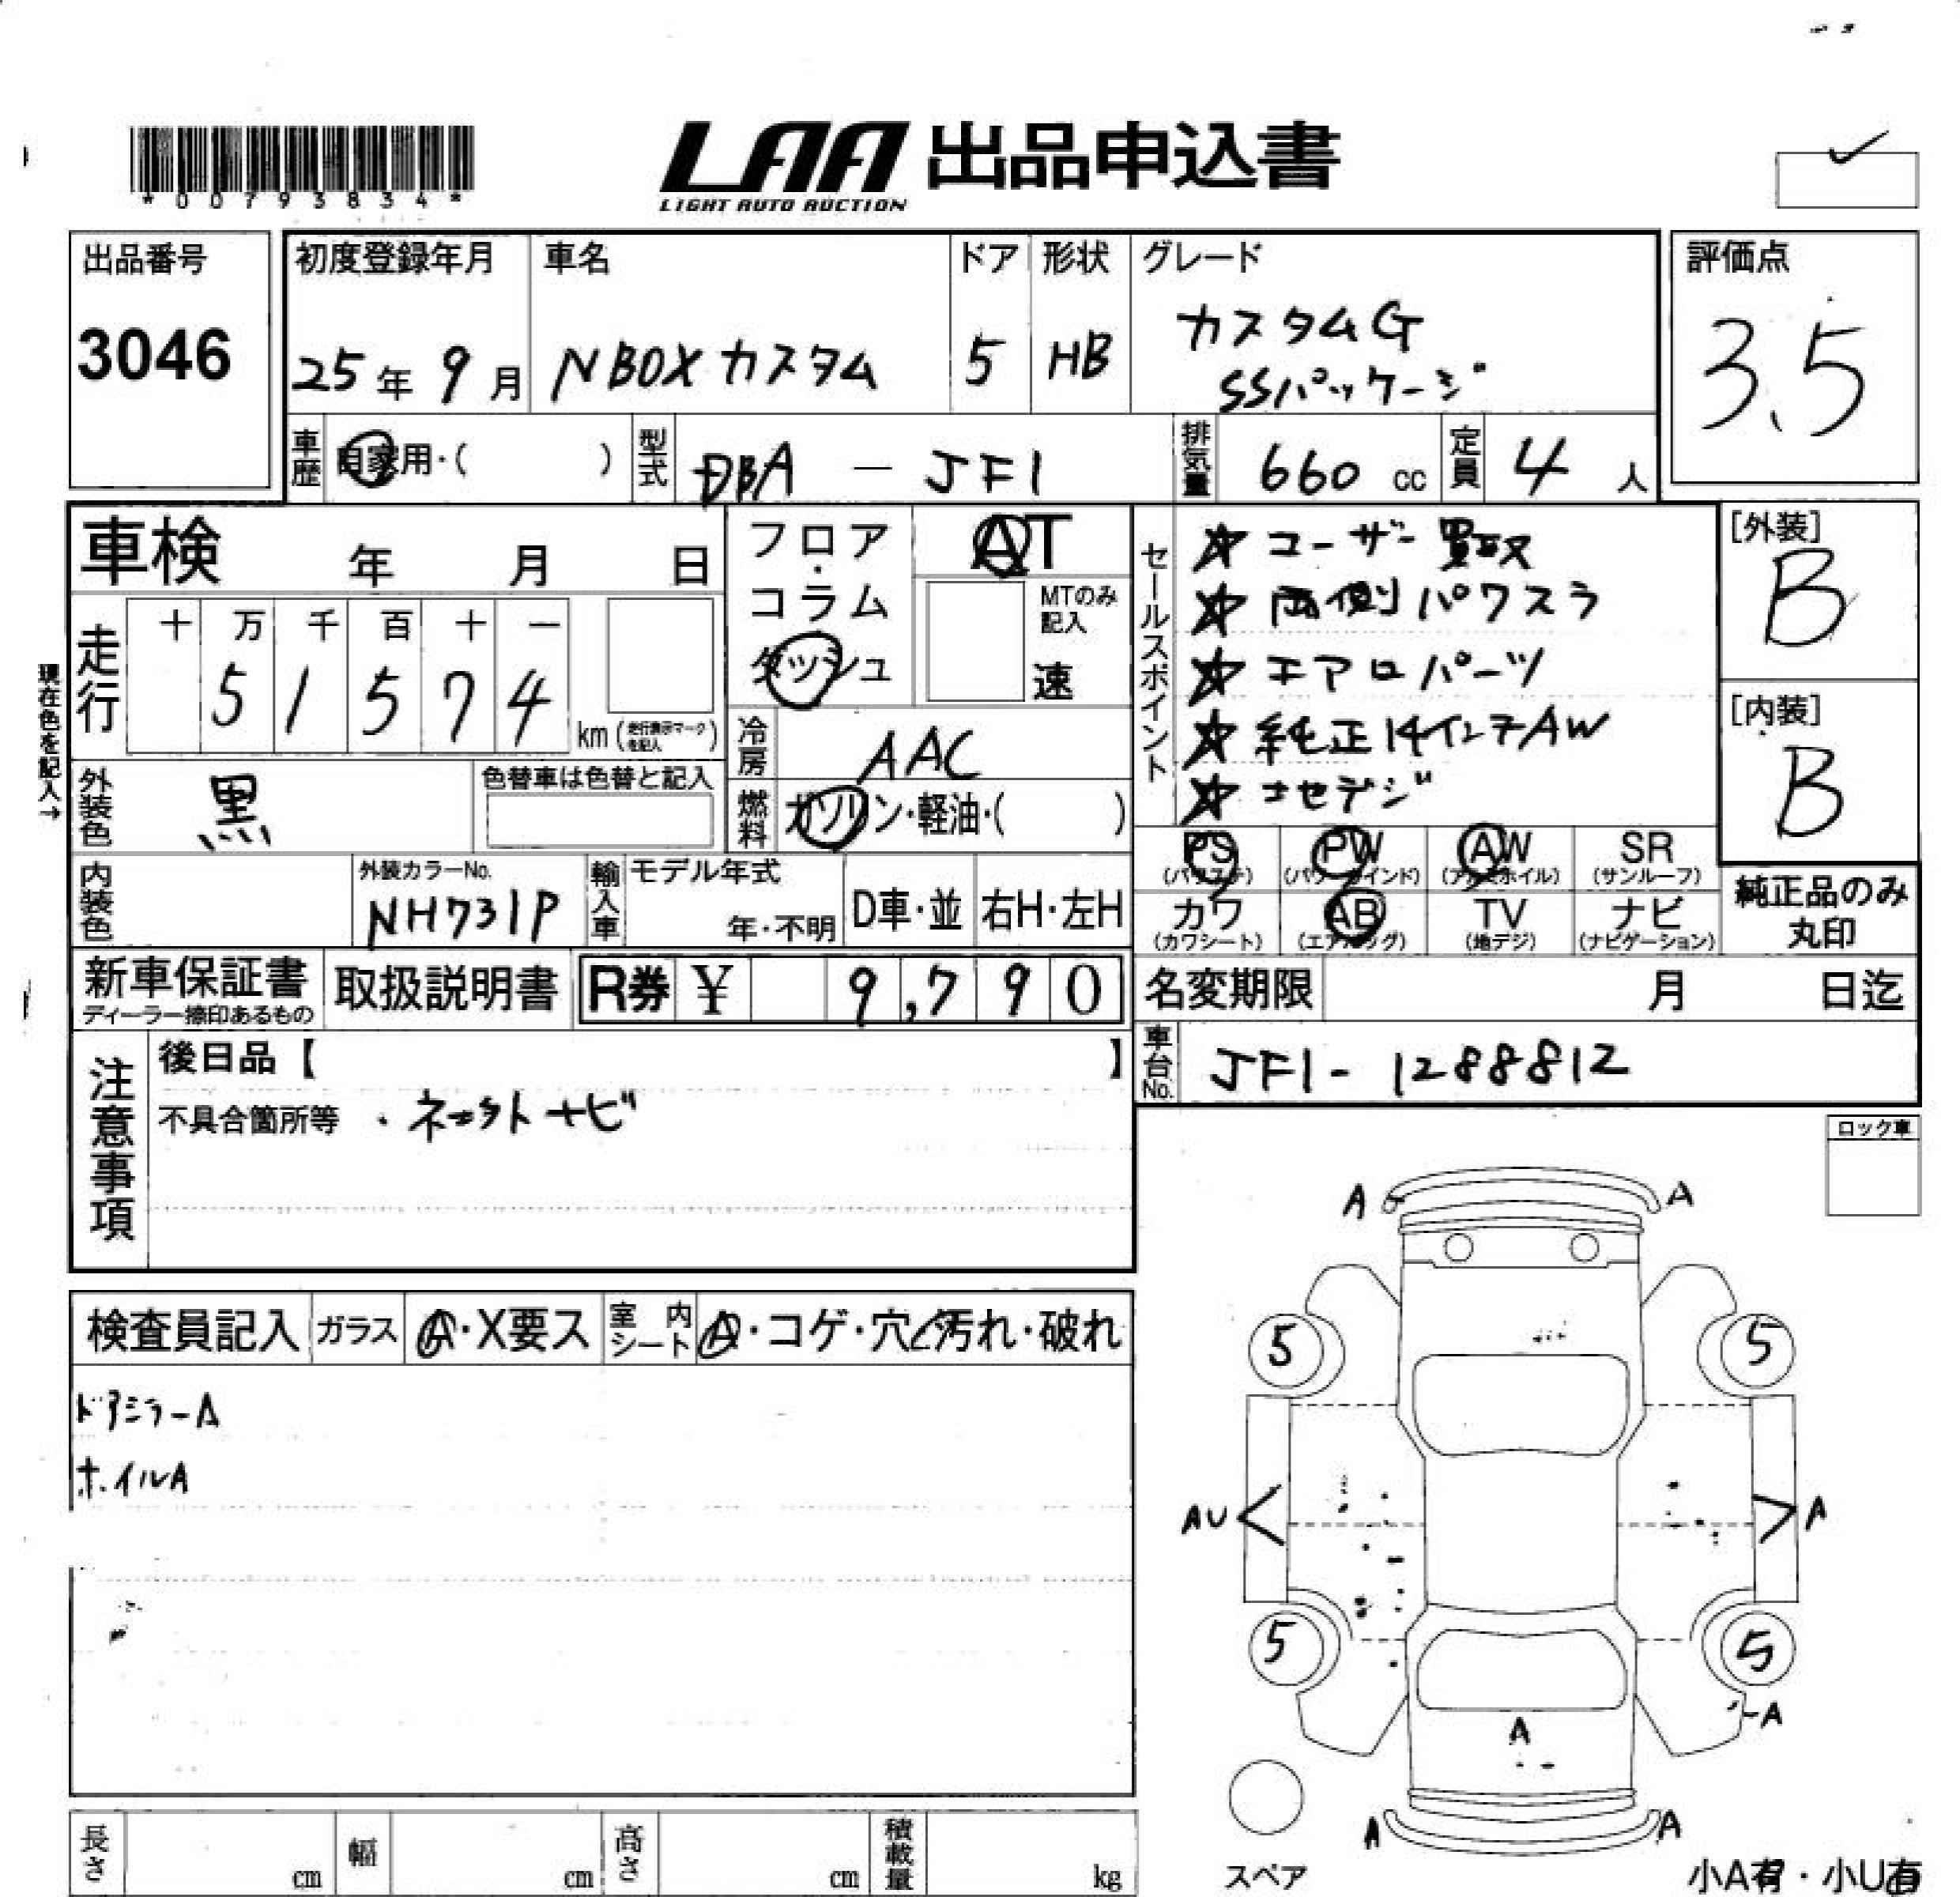 *00793834*
LAA 出品申込書
LIGHT AUTO AUCTION
出品番号
3046
初度登録年月
25年 9月
車名
NBOXカスタム
ドア
5
形状
HB
グレード
カスタムG
SSパッケージ
評価点
3.5
車歴
自家用・( )
型式
DBA - JF1
排気量
660 cc
定員
4 人
車検 年 月 日
フロア・
コラム
ダッシュ
AT
MTのみ
記入
速
セールスポイント
☆ ユーザー買取
☆ 両側パワスラ
☆ エアロパーツ
☆ 純正14インチAW
☆ ナビデジ
[外装]
B
[内装]
B
現在色を記入→
走行
十 万 千 百 十 一
5 1 5 7 4
km(走行表示マークを記入)
冷房
AAC
外装色
黒
色替車は色替と記入
燃料
ガソリン・軽油・( )
PS (パワステ)
PW (パワーウインド)
AW (アルミホイル)
SR (サンルーフ)
カワ (カワシート)
AB (エアバッグ)
TV (地デジ)
ナビ (ナビゲーション)
純正品のみ
丸印
内装色
外装カラーNo.
NH731P
輸入車
モデル年式
年・不明
D車・並
右H・左H
新車保証書
ディーラー捺印あるもの
取扱説明書
R券 ¥ 9,790
名変期限 月 日迄
車台No.
JF1-1288812
注意事項
後日品【 】
不具合箇所等 ・ネットナビ
ロック車
検査員記入
ガラス
A・X要ス
室内シート
A・コゲ・穴・汚れ・破れ
ドアミラーA
ホイルA
A A
5 5
AU A
5 5
A
A
A A
スペア
小A有・小U有
長さ cm
幅 cm
高さ cm
積載量 kg